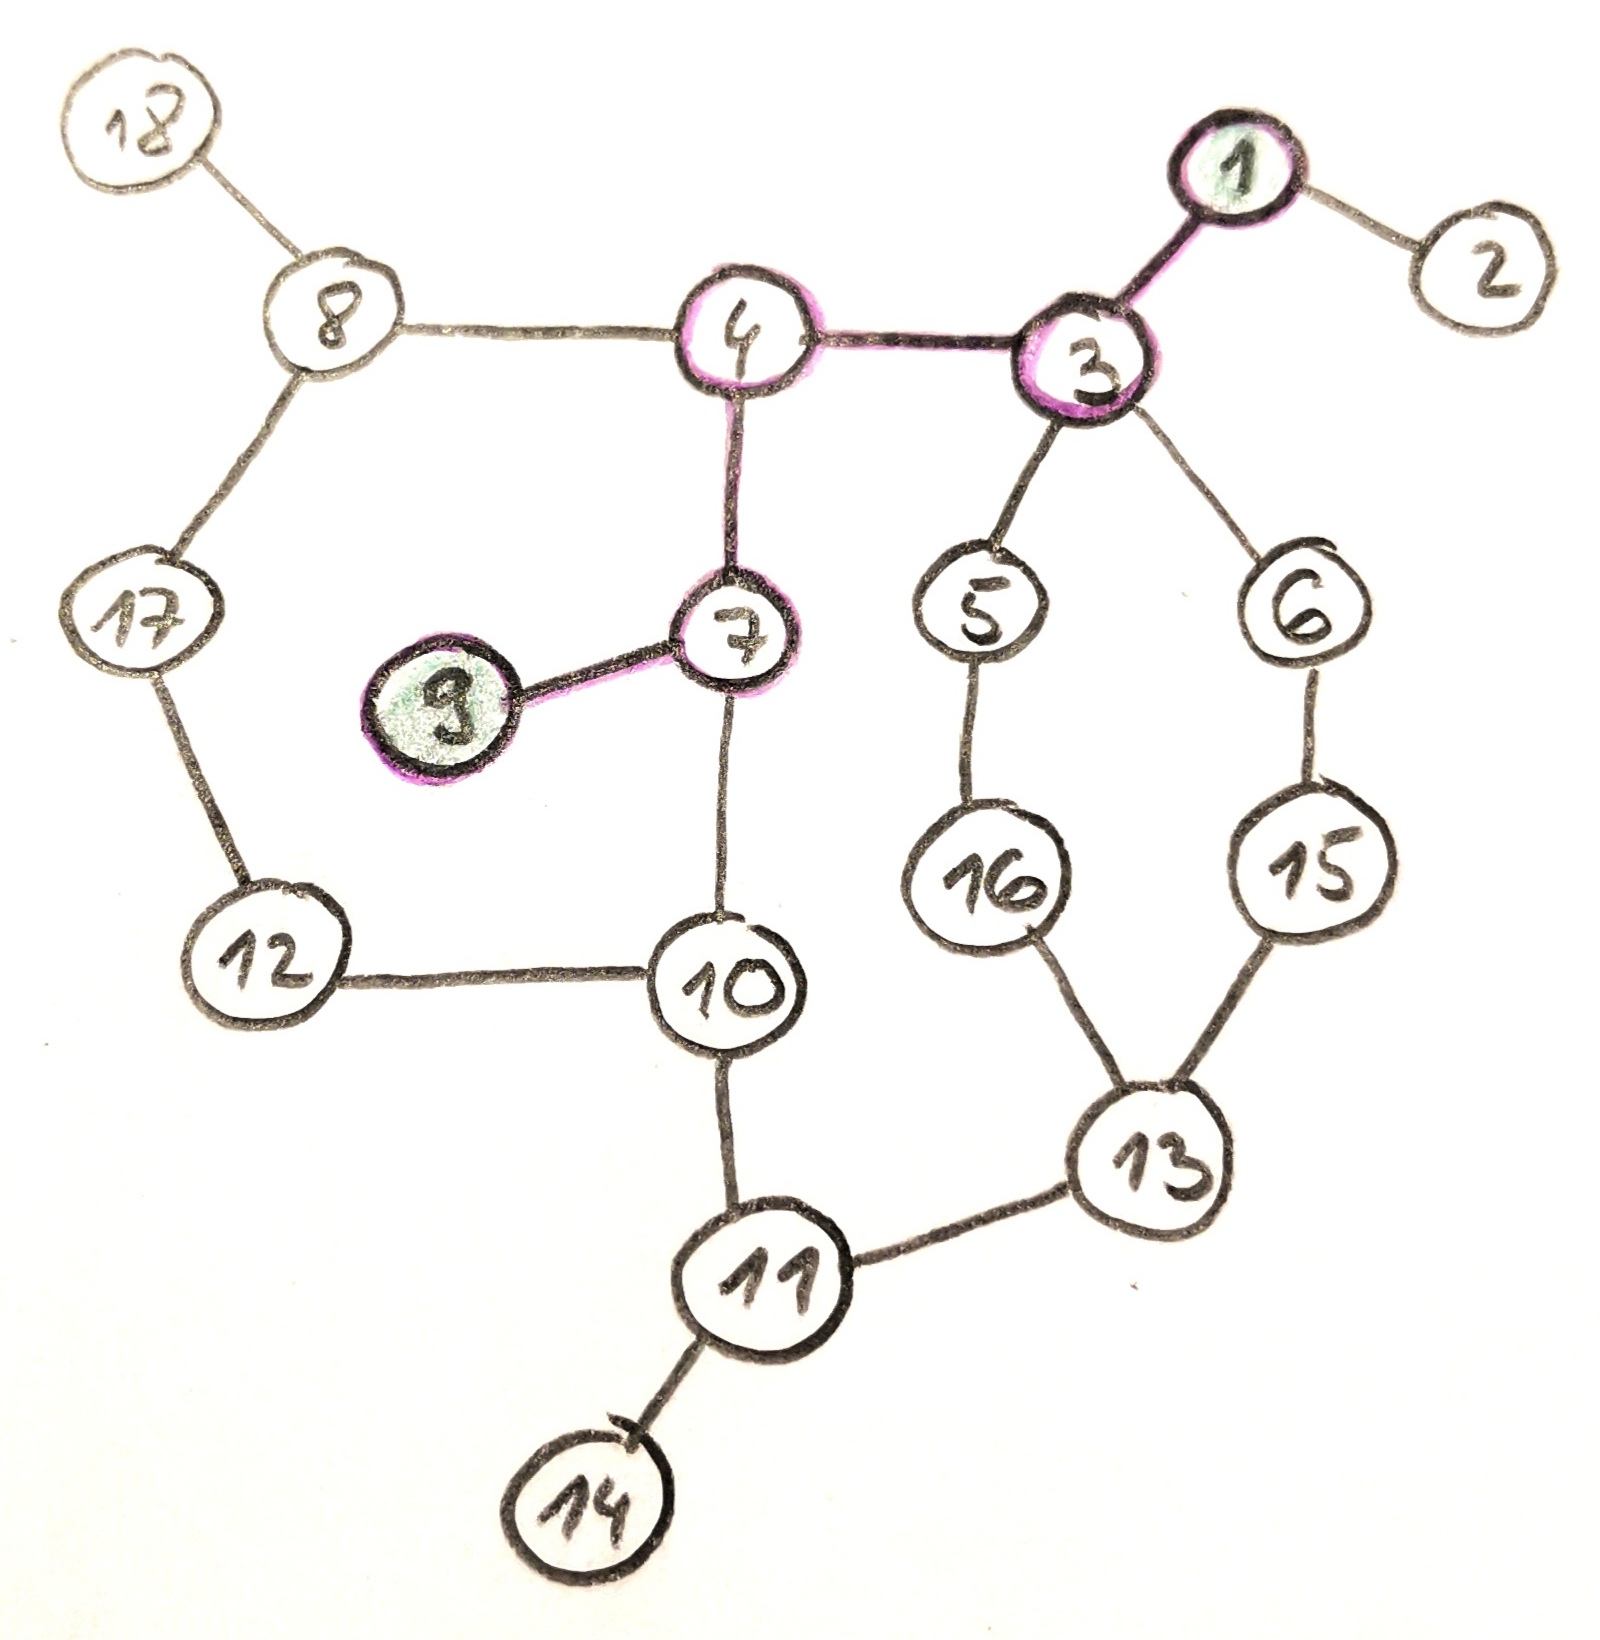 18
1
2
8
4
3
17
9
7
5
6
16
15
12
10
13
11
14